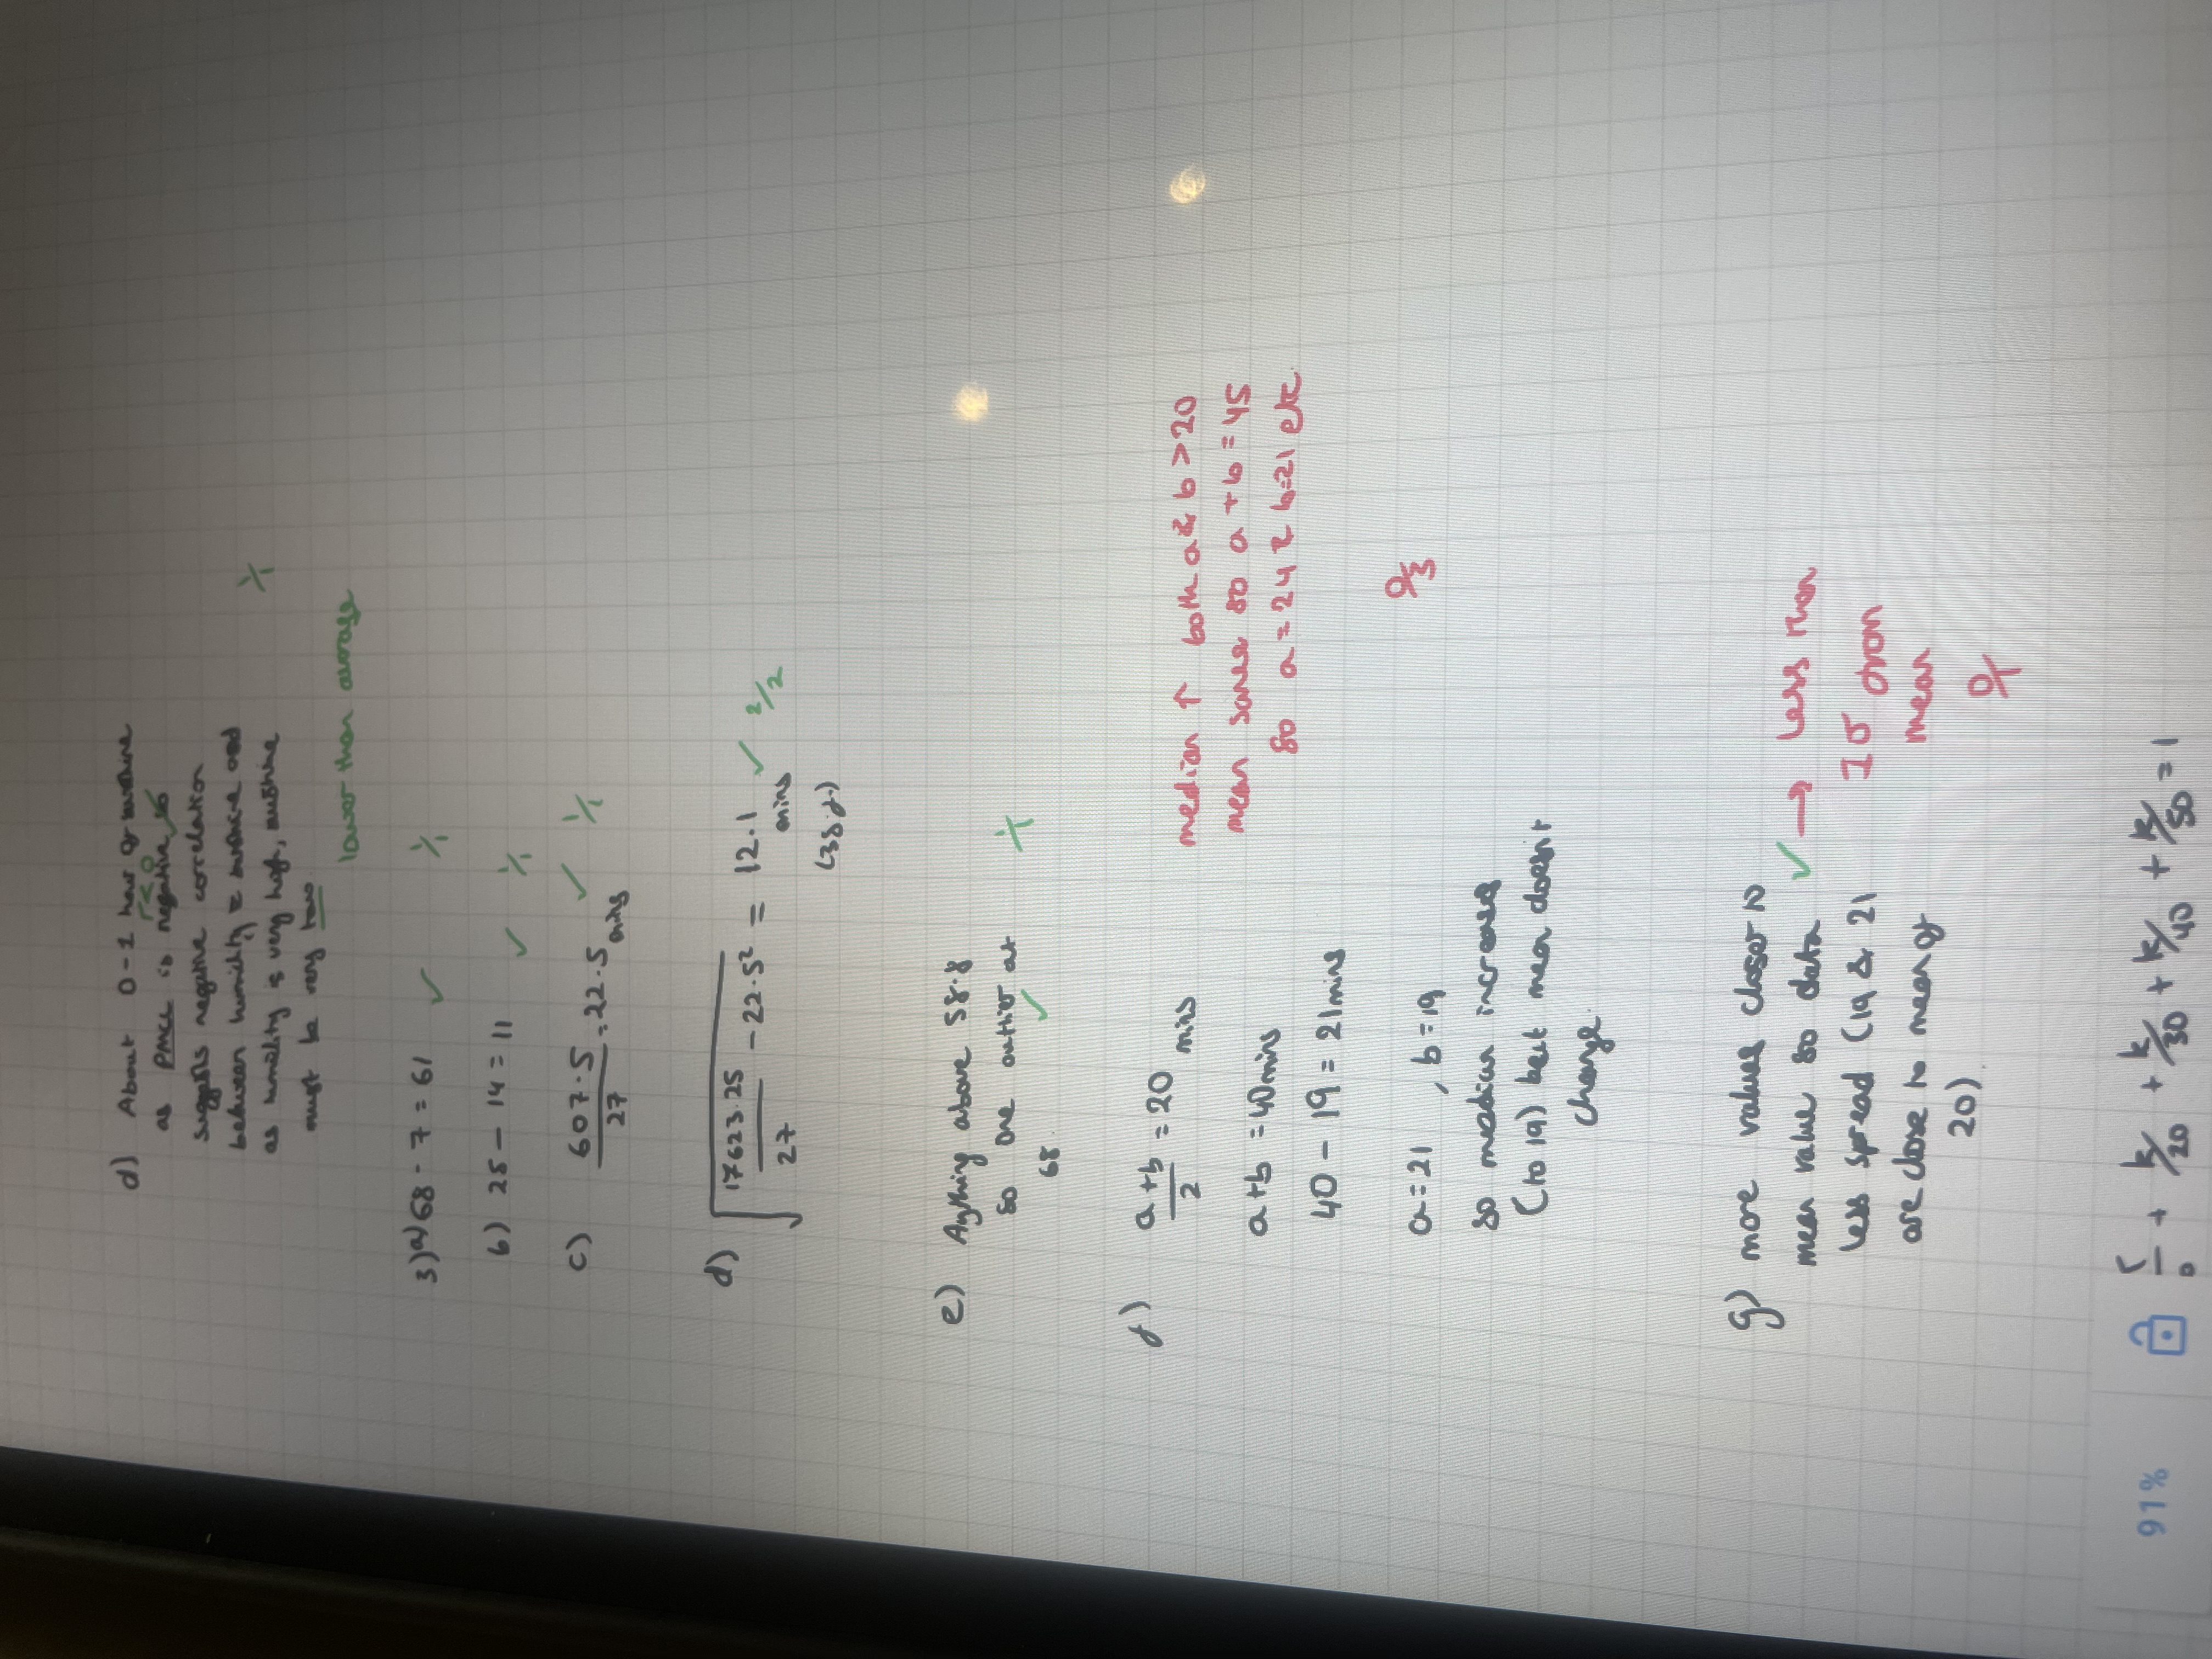 d) About 0-1 hour of sunshine
r<0
as pmcc is negative so
suggests negative correlation
between humidity & sunshine and
as humidity is very high, sunshine
must be very low
1/1
lower than average
3)a) 68 - 7 = 61 ✓ 1/1
b) 25 - 14 = 11 ✓ 1/1
c) 607.5/27 = 22.5 mins ✓ 1/1
d) √(17623.25/27 - 22.5²) = 12.1 mins ✓ 2/2
(3s.f.)
e) Anything above 58.8
so one outlier at
68. ✓ 1/1
f) a+b/2 = 20 mins
a+b = 40mins
40 - 19 = 21mins
a=21, b=19
so median increases
(to 19) but mean doesn't
change.
median ↑ both a & b >20
mean same so a+b=45
so a=24 & b=21 etc.
0/3
g) more values closer to
mean value so data ✓
less spread (19 & 21
are close to mean of
20).
→ less than
1σ from
mean
0/1
+ k/20 + k/30 + k/40 + k/50 = 1
91%